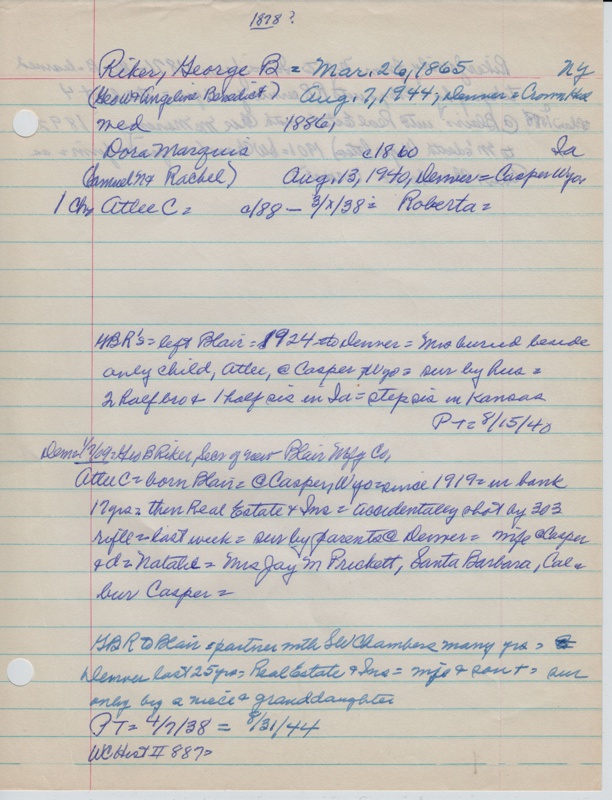 1878?
Riker, George B = Mar. 26, 1865 NY
(Geo W & Angeline Benedict) Aug. 7, 1944, Denver = Crown Hill
med 1886,
Dora Marquis c1860 Ia
(Samuel & Rachel) Aug. 13, 1940, Denver = Casper Wyo
1 Ch, Atlee C = c/88 - 3/x/38 = Roberta =
GBR's = left Blair = 1924 to Denver = Mrs buried beside
only child, Atlee, @ Casper Wyo = sur by hus =
2 half bro & 1 half sis in Ia = step sis in Kansas
PT = 8/15/40
Dem = 1/7/09 = Geo B Riker, Secr of new Blair Mfg Co,
Atlee C = born Blair = @ Casper, Wyo = since 1919 = in bank
17 yrs = then Real Estate & Ins = accidentally shot by 303
rifle = last week = sur by parents @ Denver = wife @ Casper
& d = Natalie = Mrs Jay M Prickett, Santa Barbara, Cal =
bur Casper =
GBR @ Blair = partner with Chambers many yrs =
Denver last 25 yrs = Real Estate & Ins = wife & son + = sur
only by a niece & granddaughter
PT = 4/7/38 = 8/31/44
WC Hist II 887 =